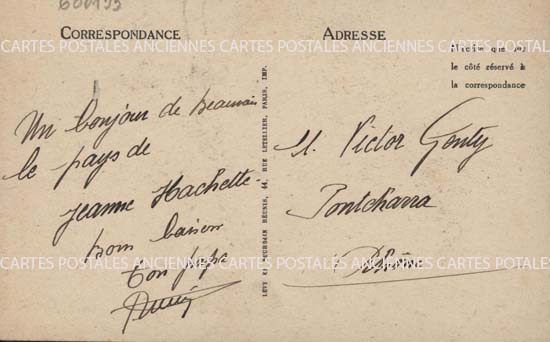 600193
CORRESPONDANCE
ADRESSE
CARTES POSTALES ANCIENNES CARTES POSTALES ANCIENNES CARTES POSTALES ANCIENNES
le côté réservé à
la correspondance
Un bonjour de Beauvais
le pays de
Jeanne Hachette
bon baiser
ton papa
LÉVY ET NEURDEIN RÉUNIS, 44, RUE LETELLIER, PARIS, IMP.
M. Victor
Pontcharra
Rhône
CARTES POSTALES ANCIENNES CARTES POSTALES ANCIENNES CARTES POSTALES ANCIENNES